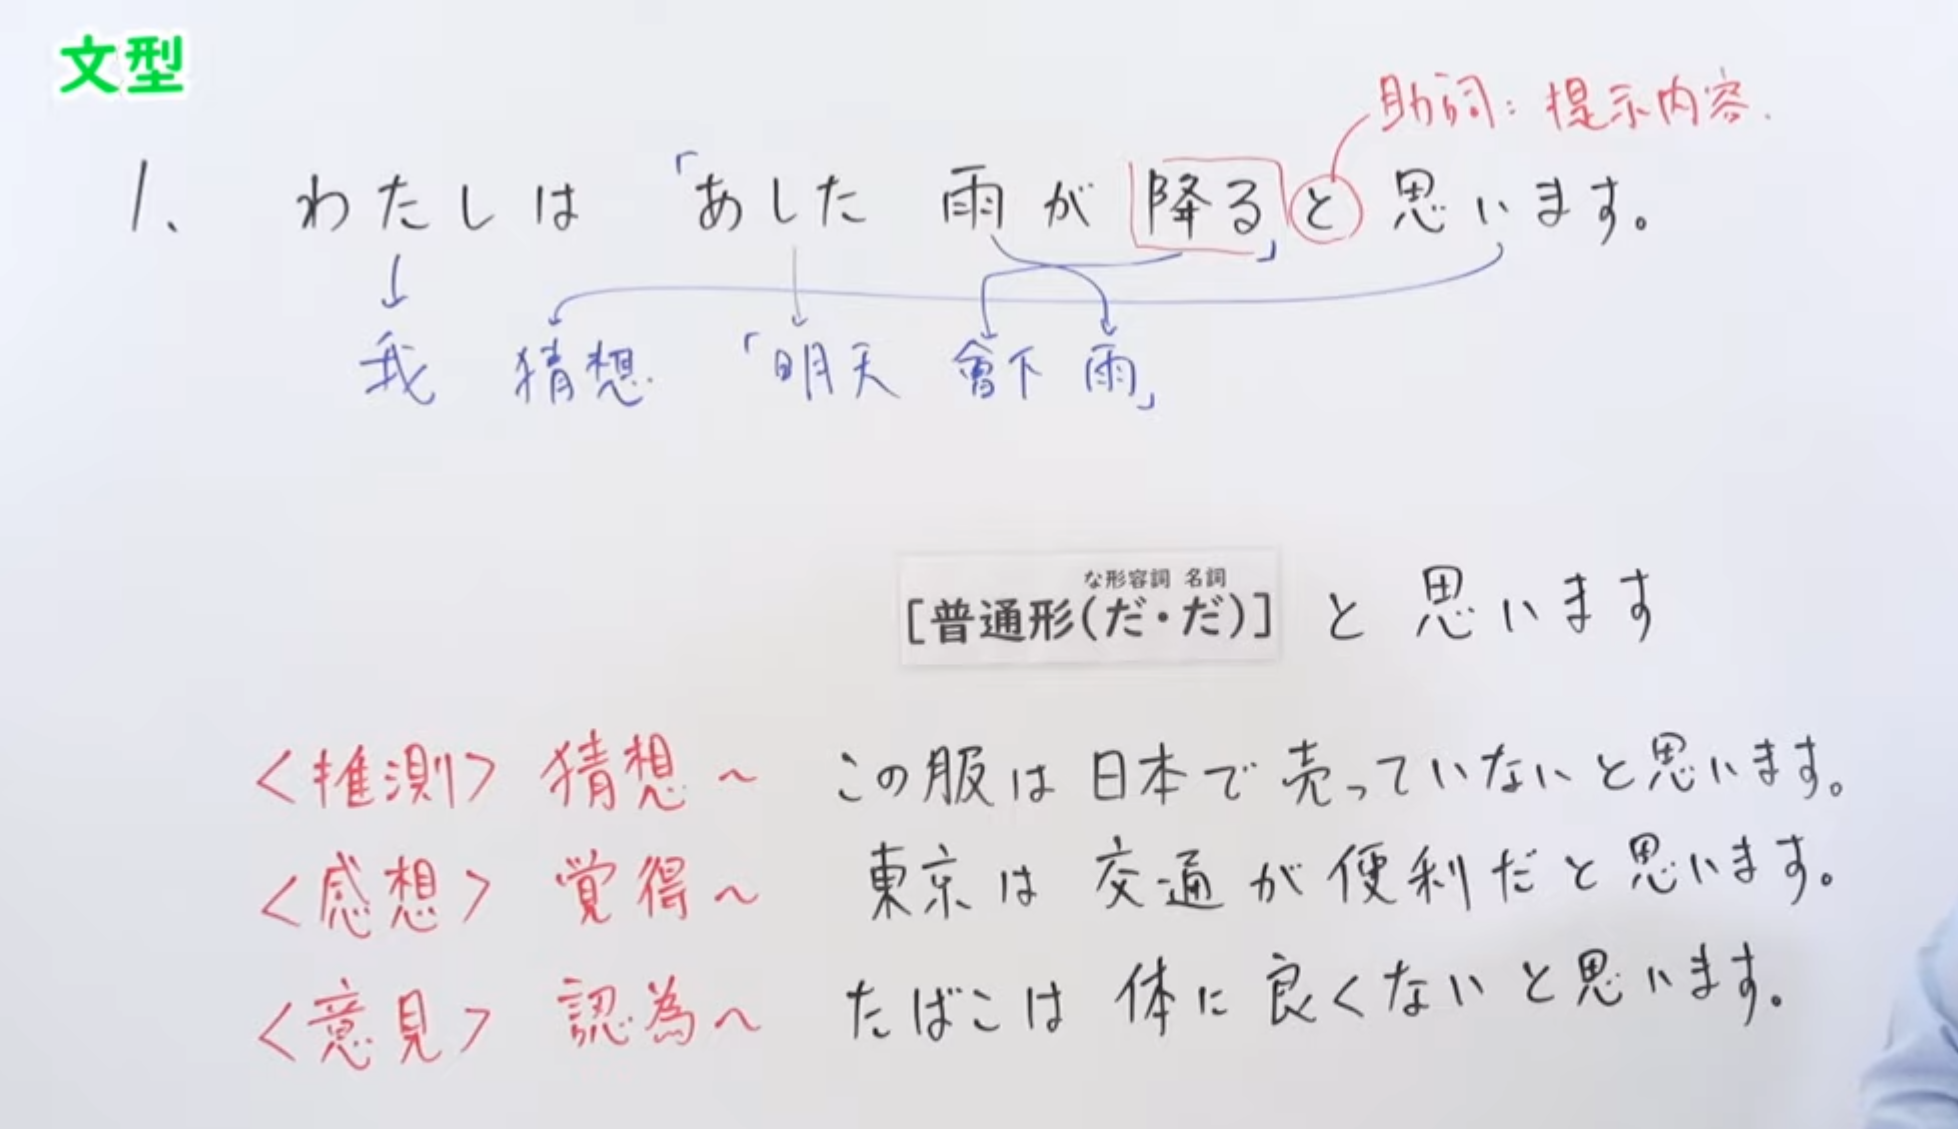 文型
助詞：提示内容.
1、わたしは「あした 雨が降る」と思います。
我 猜想「明天 會下雨」
な形容詞 名詞
[普通形(だ・だ)] と思います
＜推測＞ 猜想～ この服は日本で売っていないと思います。
＜感想＞ 覚得～ 東京は交通が便利だと思います。
＜意見＞ 認為～ たばこは体に良くないと思います。